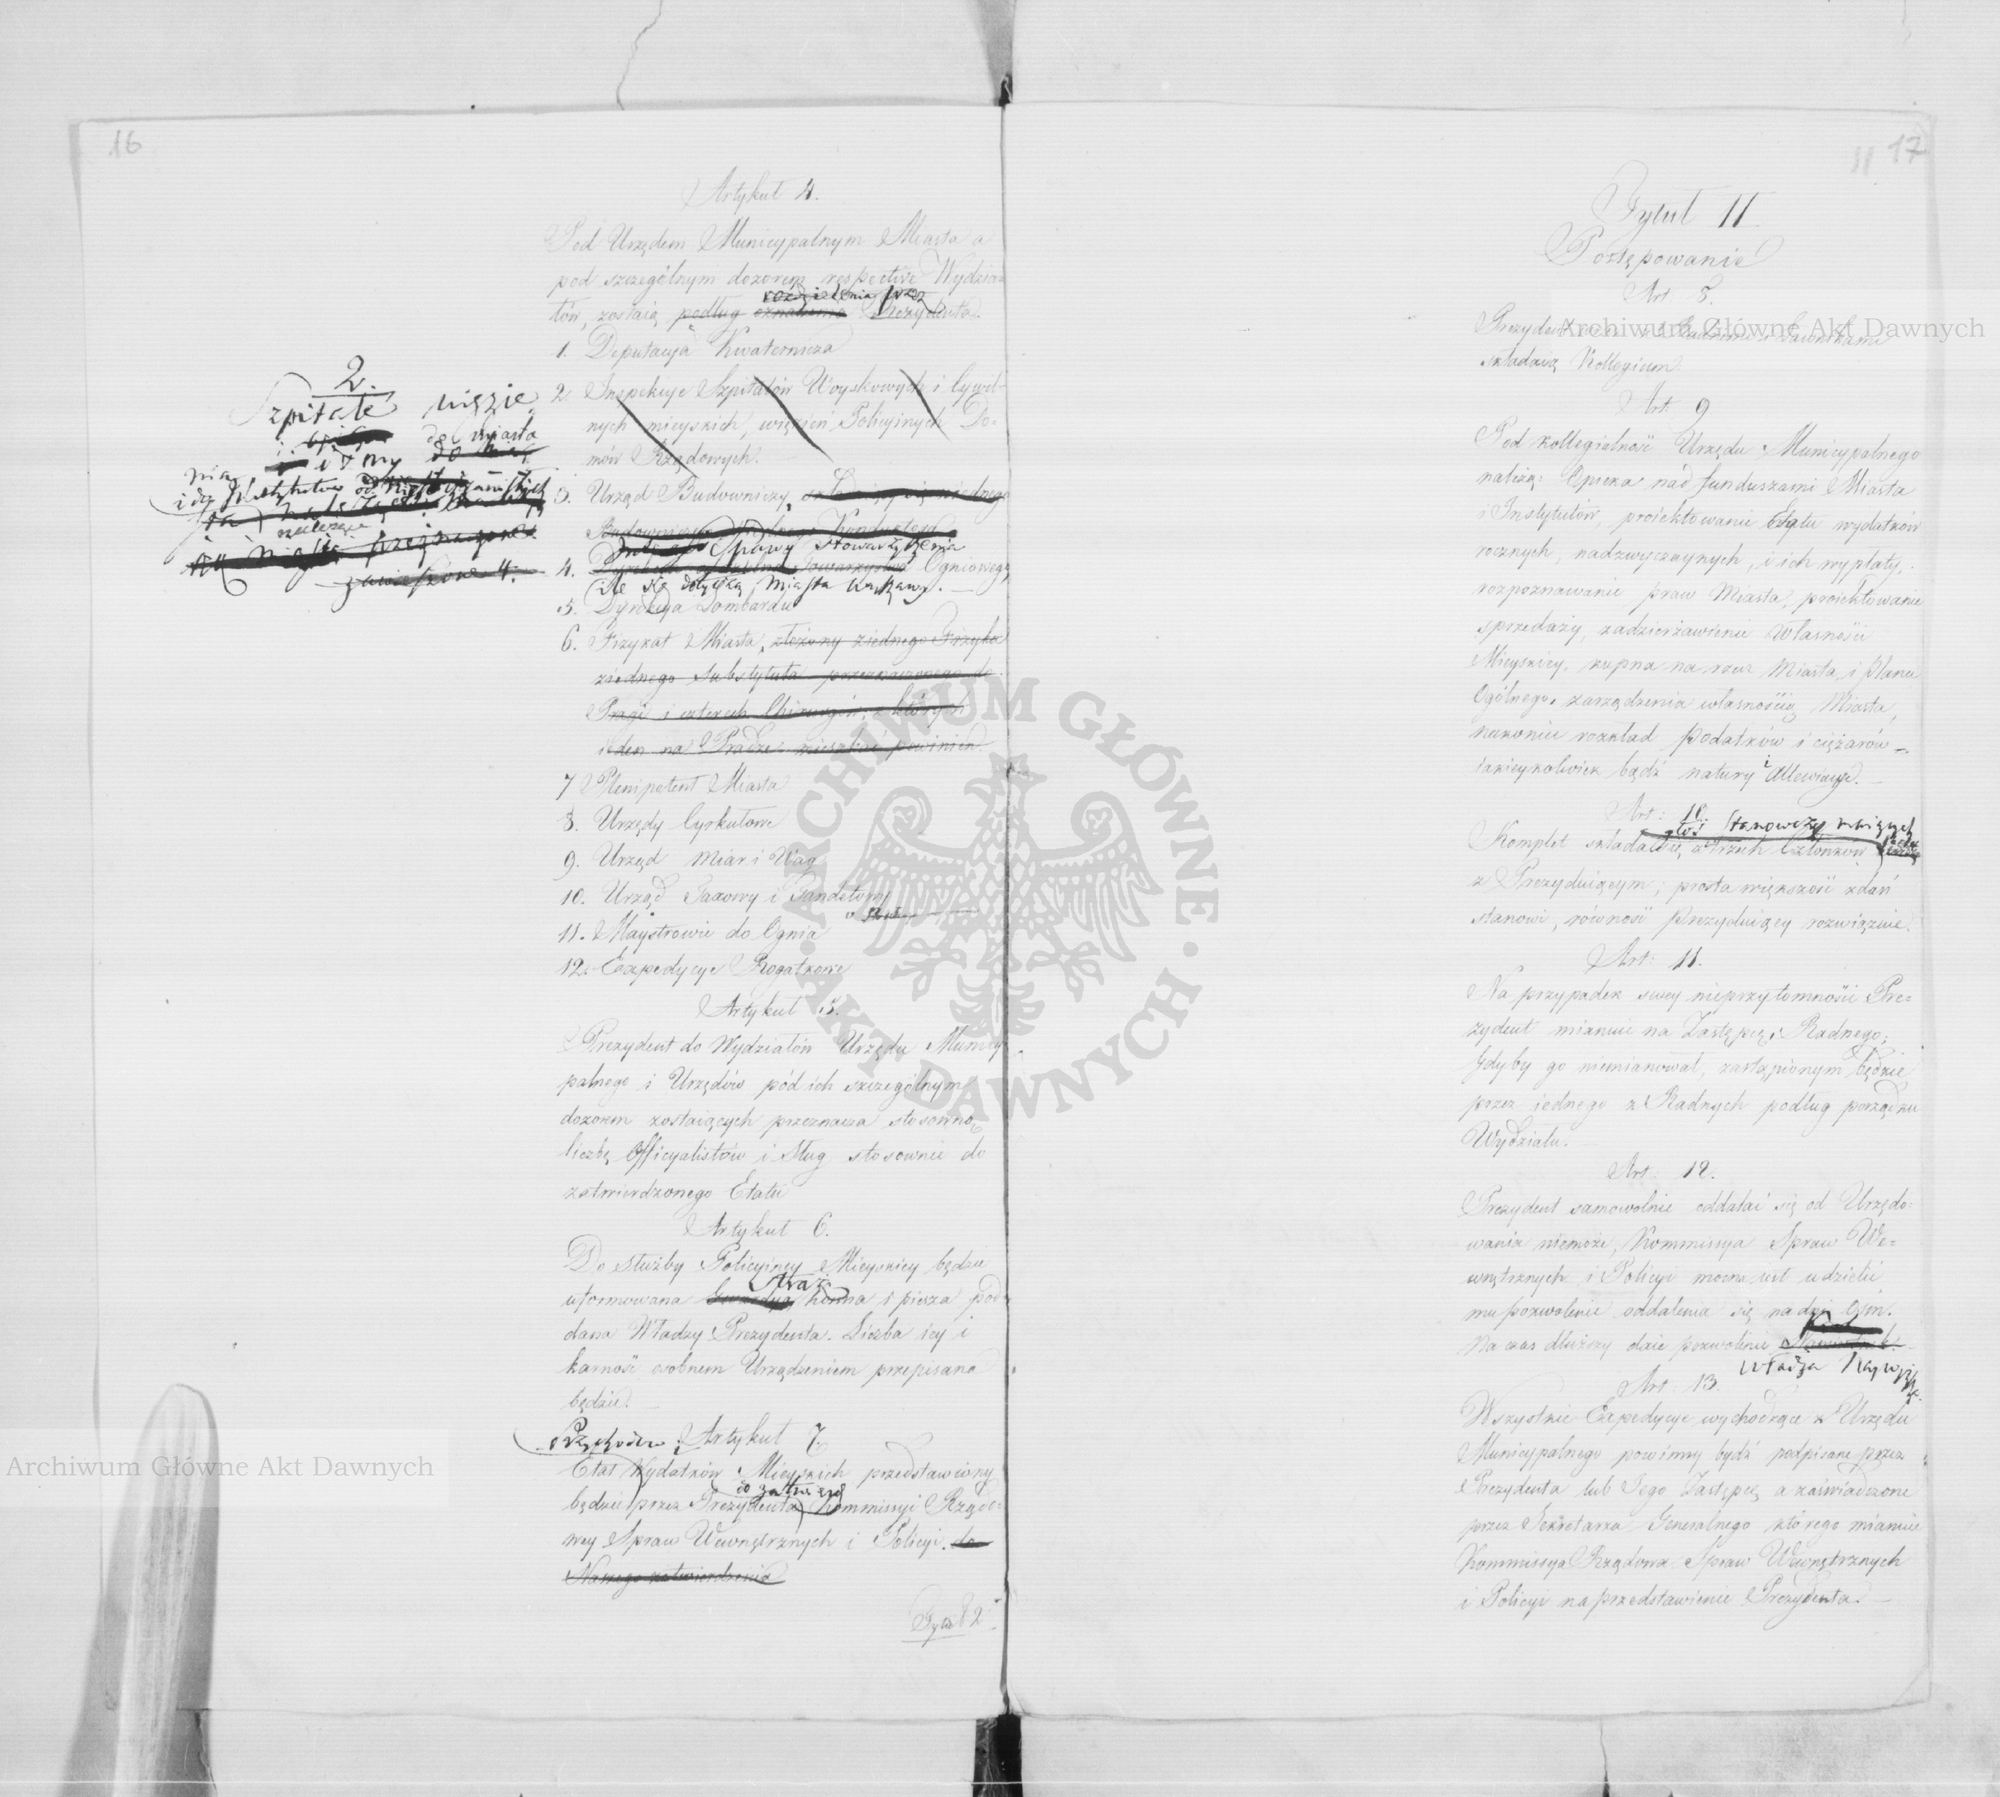 16
Artykuł 4.
Pod Urzędem Municypalnym Miasta a
pod szczególnym dozorem respective Wydzia-
łów, zostaią podług rozdzielenia przez Prezydenta.
1. Deputacya Kwaternicza
2. Inspekcye Szpitalów Woyskowych i Cywil-
nych mieyskich, więzień Policyinych Do-
mów Rządowych.
3. Urząd Budowniczy, składaiący się z iednego
Budowniczego
Sprawy Stowarzyszenia
4. Dyrekcya Towarzystwa Ogniowego
ile się dotyczą Miasta Warszawy.
5. Dyrekcya Lombardu
6. Fizykat Miasta, złożony z iednego Fizyka
z iednego Substytuta przeznaczonego do
Pragi i czterech Chirurgów, z których
ieden na Pradze mieszkać powinien
7 Plenipotent Miasta
8. Urzędy Cyrkułowe
9. Urząd Miar i Wag
10. Urząd Taxowy i Tandetowy
11. Maystrowie do Ognia
12. Expedycye Rogatkowe
Artykuł 5.
Prezydent do Wydziałów Urzędu Munici-
palnego i Urzędów pód ich szczególnym
dozorem zostaiących przeznacza stosowną
liczbę Officyalistów i Sług stosownie do
zatwierdzonego Etatu
Artykuł 6.
Do służby Policyiney Mieyskiey będzie
uformowana Straż konna i piesza pod-
dana Władzy Prezydenta. Liczba iey i
karność osobnem Urządzeniem przepisana
będzie.
Artykuł 7.
Przychodów i
Etat Wydatków Mieyskich przedstawiony
będzie przez Prezydenta do zatwierdz Kommissyi Rządo-
wey Spraw Wewnętrznych i Policyi. do
Naszego zatwierdzenia
Tytuł 2
2.
Szpitale więzie
nia i domy do miasta
11 17
Tytuł II
Postępowanie
Art. 8.
Prezydent wraz z Radnemi i Ławnikami
składaią Kollegium
Art: 9
Pod kollegialność Urzędu Municypalnego
należą: Opieka nad funduszami Miasta
i Instytutów, proiektowanie Etatu wydatków
rocznych, nadzwyczaynych, i ich wypłaty,
rozpoznawanie praw Miasta, proiektowanie
sprzedaży, zadzierżawienie Własności
Mieyskiey, kupna na rzecz Miasta, i Planu
Ogólnego, zarządzenia własnością Miasta,
nakoniec rozkład Podatków i ciężarów
iakieykolwiek bądź natury i Allewiacye.
Art: 10.
głos stanowczy maiących
Komplet składa się z trzech Członków
z Prezyduiącym; prosta większość zdań
stanowi, równość Prezyduiący rozwiązuie.
Art: 11.
Na przypadek swey nieprzytomności Pre-
zydent mianuie na Zastępcę, Radnego;
Gdyby go niemianował, zastąpionym będzie
przez iednego z Radnych podług porządku
Wydziału.
Art: 12.
Prezydent samowolnie oddalać się od Urzędo-
wania niemoże, Kommissya Spraw We-
wnętrznych i Policyi mocna iest udzielić
mu pozwolenie oddalenia się na dni Ośm.
Na czas dłuższy daie pozwolenie
Władza Naywyższa.
Art: 13.
Wszystkie Expedycye wychodzące z Urzędu
Municypalnego powinny bydź podpisane przez
Prezydenta lub Iego Zastępcę a zaświadczone
przez Sekretarza Generalnego którego mianuie
Kommissya Rządowa Spraw Wewnętrznych
i Policyi na przedstawienie Prezydenta.
Archiwum Główne Akt Dawnych
Archiwum Główne Akt Dawnych
ARCHIWUM GŁÓWNE · AKT DAWNYCH ·